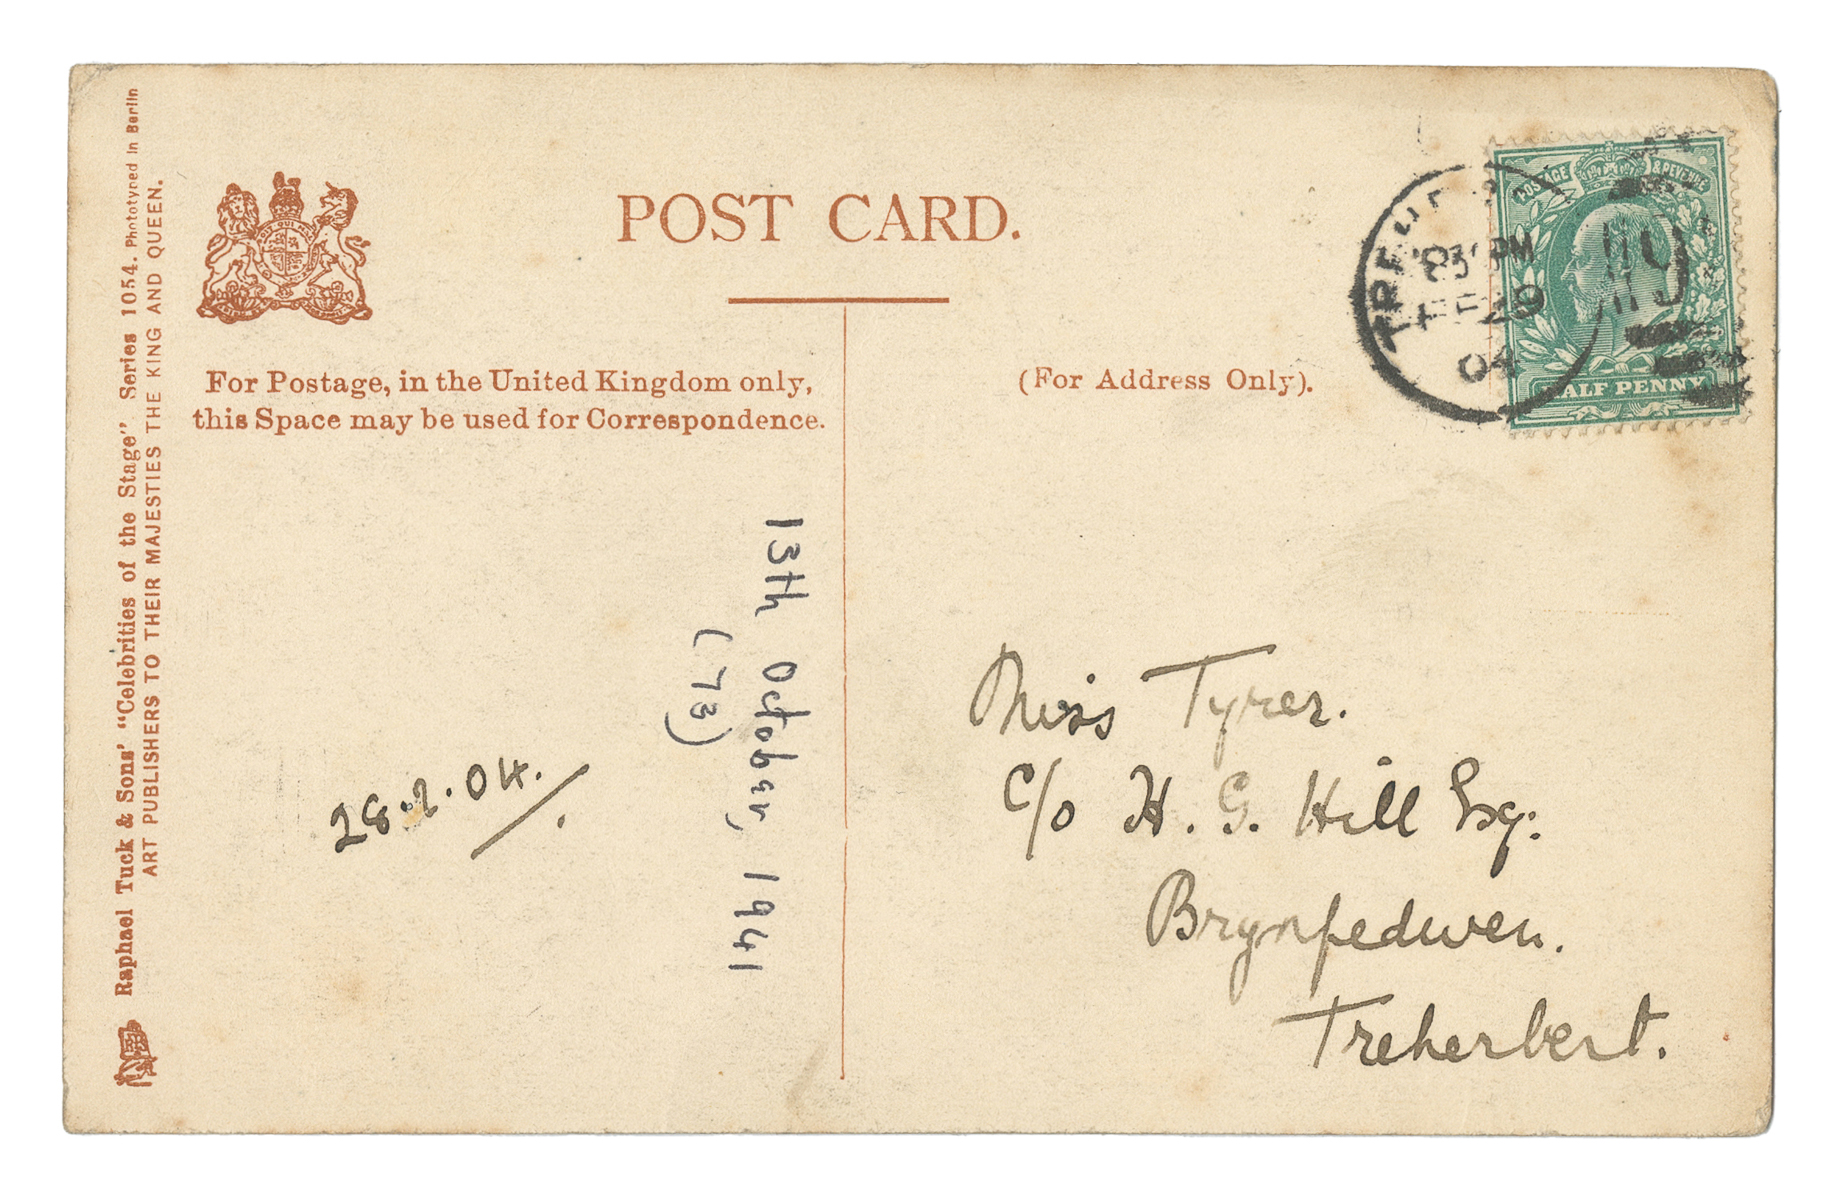 POST CARD.
For Postage, in the United Kingdom only,
this Space may be used for Correspondence.
(For Address Only).
Raphael Tuck & Sons' "Celebrities of the Stage" Series 1054. Phototyped in Berlin
ART PUBLISHERS TO THEIR MAJESTIES THE KING AND QUEEN.
POSTAGE & REVENUE
HALF PENNY
PM
04
28.2.04.
13th October, 1941
(73)
Miss Tyrer.
c/o H. G. Hill Esq:
Brynfedwen.
Treherbert.